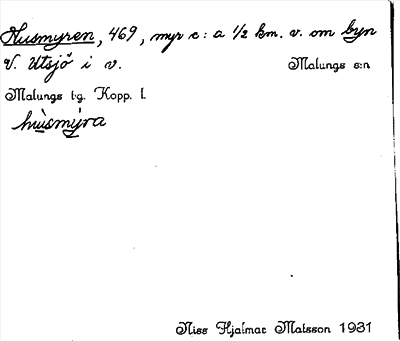 Husmyren, 469, myr c:a 1/2 km. v. om byn
V. Utsjö i v. Malungs s:n
Malungs tg. Kopp. l.
hùsmýra
Niss Hjalmar Matsson 1931